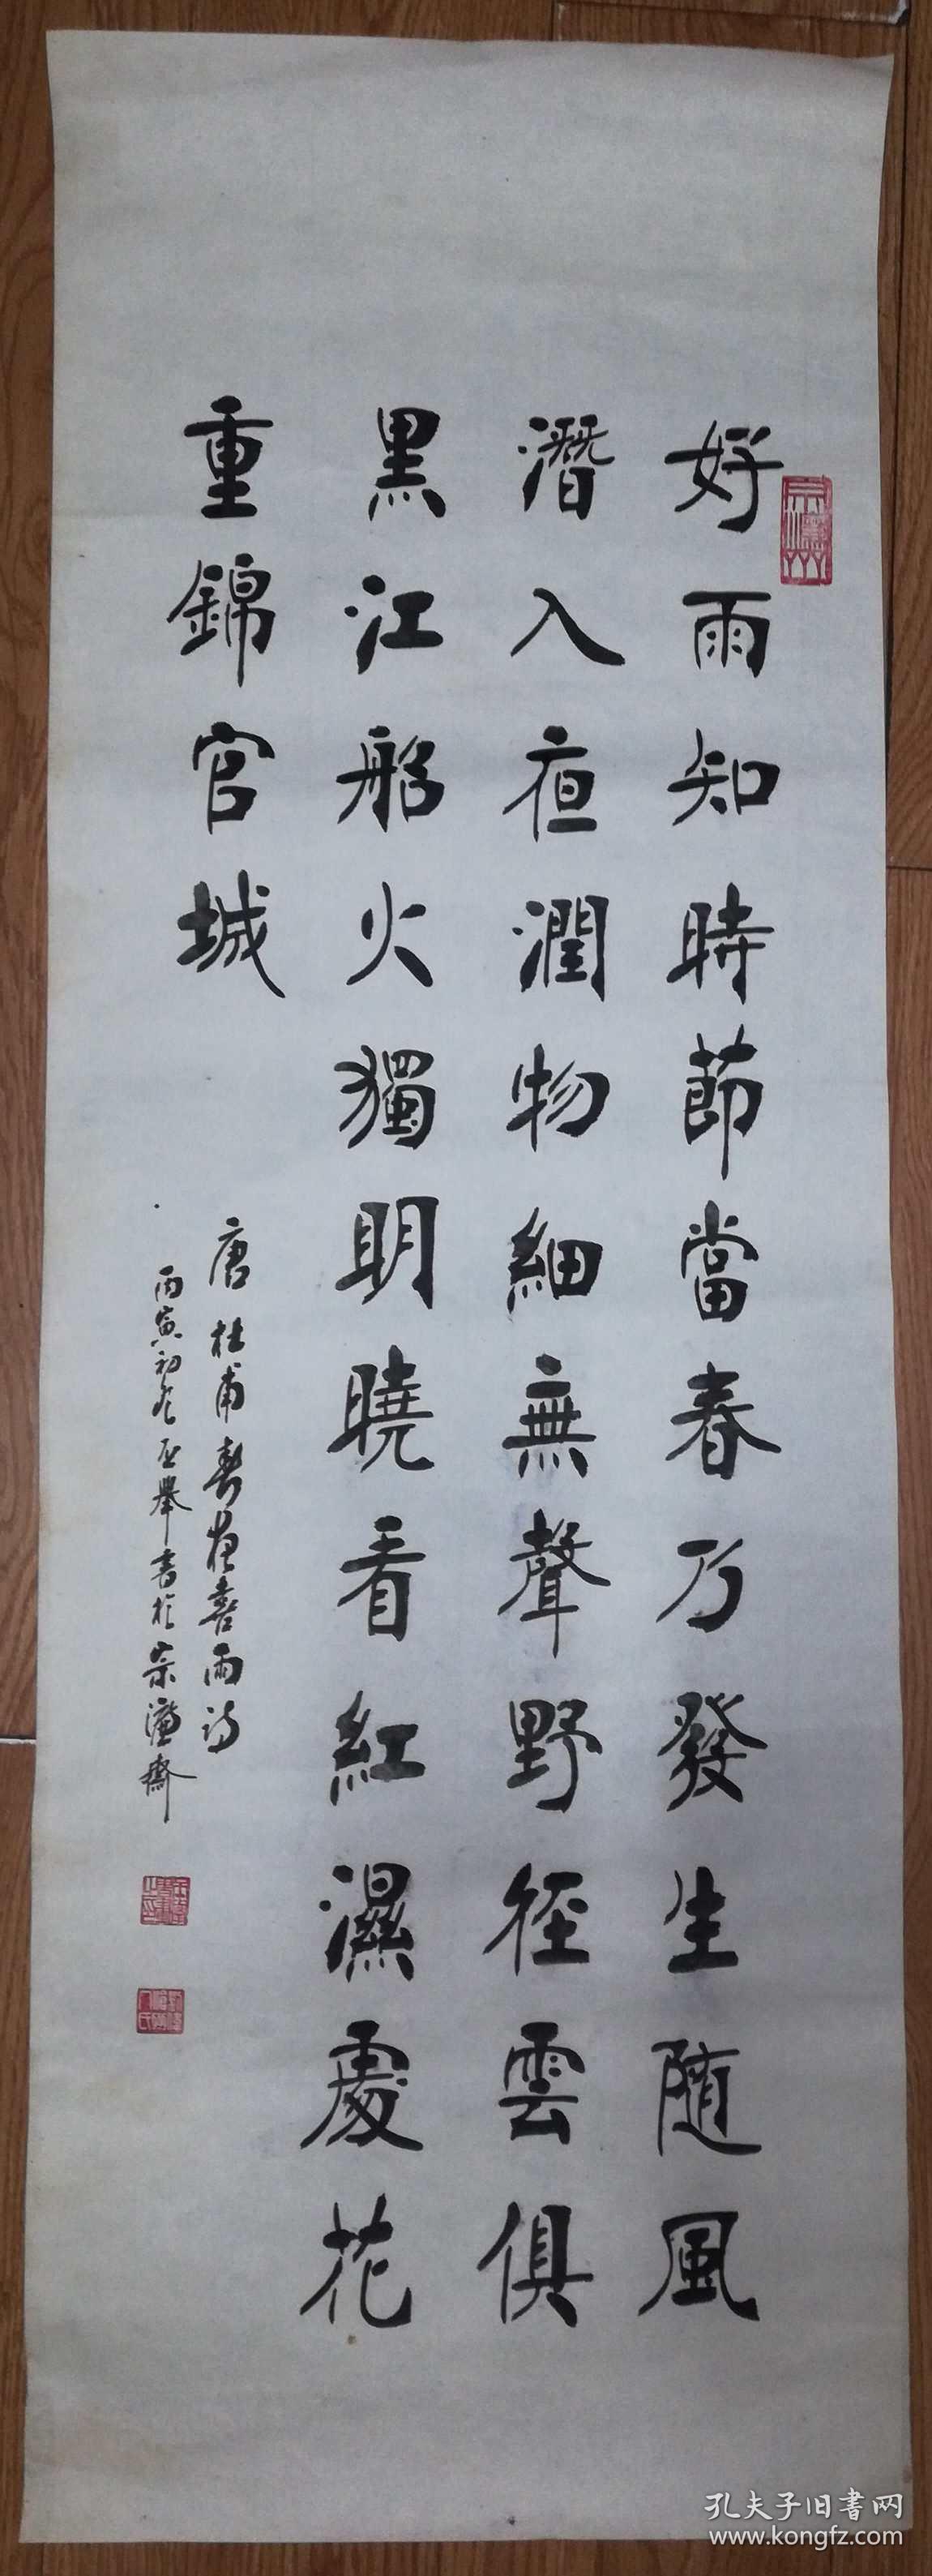 好雨知時節當春乃發生隨風
潛入夜潤物細無聲野徑雲俱
黑江船火獨明曉看紅濕處花
重錦官城
唐杜甫春夜喜雨詩
丙寅初冬
舉書於崇濂齋
孔夫子旧書网
www.kongfz.com